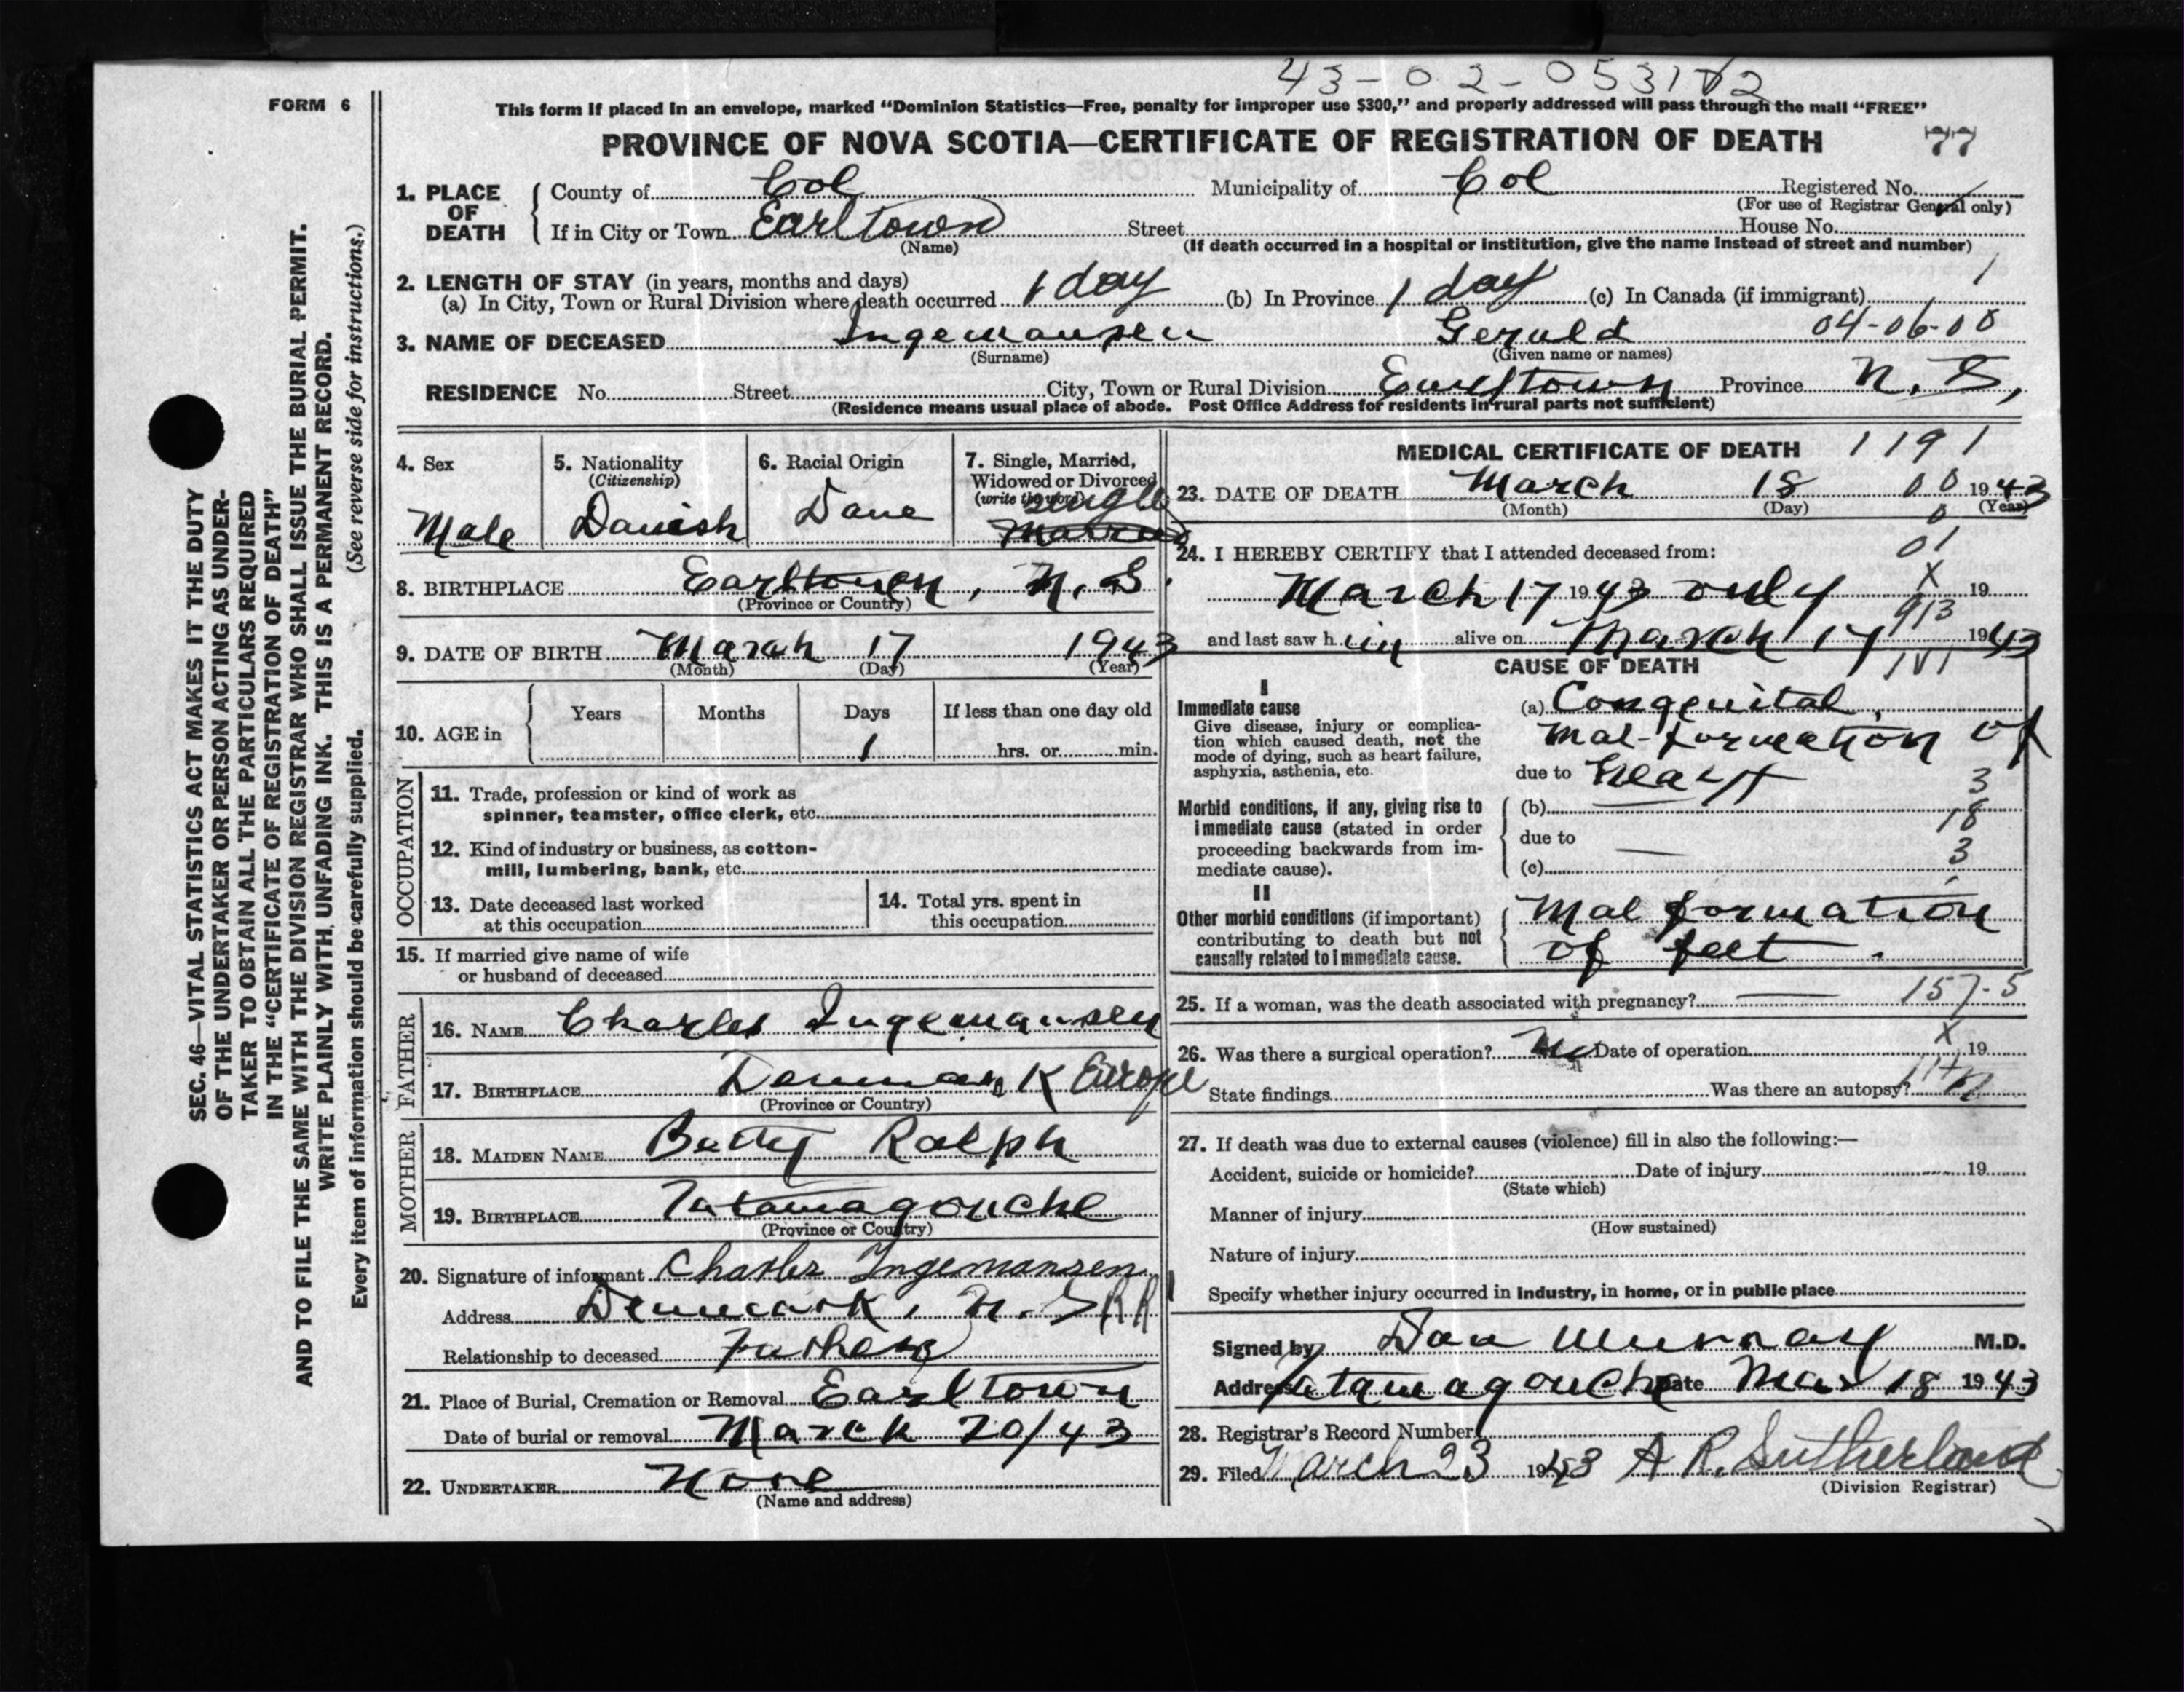 43-02-053102
FORM 6
This form if placed in an envelope, marked “Dominion Statistics—Free, penalty for improper use $300,” and properly addressed will pass through the mail “FREE”
PROVINCE OF NOVA SCOTIA—CERTIFICATE OF REGISTRATION OF DEATH 77
1. PLACE OF DEATH County of Col Municipality of Col Registered No.
(For use of Registrar General only)
If in City or Town Earltown Street House No.
(Name) (If death occurred in a hospital or institution, give the name instead of street and number)
2. LENGTH OF STAY (in years, months and days) 1
(a) In City, Town or Rural Division where death occurred 1 day (b) In Province 1 day (c) In Canada (if immigrant)
3. NAME OF DECEASED Ingemansen Gerald 04-06-00
(Surname) (Given name or names)
RESIDENCE No. Street City, Town or Rural Division Earltown Province N.S.,
(Residence means usual place of abode. Post Office Address for residents in rural parts not sufficient)
4. Sex Male
5. Nationality (Citizenship) Danish
6. Racial Origin Dane
7. Single, Married, Widowed or Divorced (write the word) single Married
8. BIRTHPLACE Earltown, N.S.
(Province or Country)
9. DATE OF BIRTH March 17 1943
(Month) (Day) (Year)
10. AGE in Years Months Days If less than one day old
1 hrs. or min.
OCCUPATION
11. Trade, profession or kind of work as
spinner, teamster, office clerk, etc.
12. Kind of industry or business, as cotton-
mill, lumbering, bank, etc.
13. Date deceased last worked
at this occupation
14. Total yrs. spent in
this occupation
15. If married give name of wife
or husband of deceased
FATHER
16. NAME Charles Ingemansen
17. BIRTHPLACE Denmark Europe
(Province or Country)
MOTHER
18. MAIDEN NAME Betty Ralph
19. BIRTHPLACE Tatamagouche
(Province or Country)
20. Signature of informant Charles Ingemansen
Address Denmark, N.S. RR 1
Relationship to deceased Father
21. Place of Burial, Cremation or Removal Earltown
Date of burial or removal March 20/43
22. UNDERTAKER None
(Name and address)
MEDICAL CERTIFICATE OF DEATH 1191
23. DATE OF DEATH March 18 00 1943
(Month) (Day) (Year)
0
24. I HEREBY CERTIFY that I attended deceased from: 01
March 17 1943 only X 19
913
and last saw him alive on March 17 1943
CAUSE OF DEATH
I
Immediate cause
Give disease, injury or complica-
tion which caused death, not the
mode of dying, such as heart failure,
asphyxia, asthenia, etc.
(a) Congenital
Mal-formation of
due to heart
3
Morbid conditions, if any, giving rise to
immediate cause (stated in order
proceeding backwards from im-
mediate cause).
(b)
18
due to
3
(c)
II
Other morbid conditions (if important)
contributing to death but not
causally related to immediate cause.
Mal formation
of feet.
25. If a woman, was the death associated with pregnancy? 157-5
26. Was there a surgical operation? No Date of operation X 19
State findings Was there an autopsy?
27. If death was due to external causes (violence) fill in also the following:—
Accident, suicide or homicide? Date of injury 19
(State which)
Manner of injury
(How sustained)
Nature of injury
Specify whether injury occurred in industry, in home, or in public place
Signed by Dan Murray M.D.
Address Tatamagouche Date Mar 18 1943
28. Registrar's Record Number
29. Filed March 23 1943 A R. Sutherland
(Division Registrar)
SEC. 46—VITAL STATISTICS ACT MAKES IT THE DUTY
OF THE UNDERTAKER OR PERSON ACTING AS UNDER-
TAKER TO OBTAIN ALL THE PARTICULARS REQUIRED
IN THE “CERTIFICATE OF REGISTRATION OF DEATH”
AND TO FILE THE SAME WITH THE DIVISION REGISTRAR WHO SHALL ISSUE THE BURIAL PERMIT.
WRITE PLAINLY WITH UNFADING INK. THIS IS A PERMANENT RECORD.
Every item of information should be carefully supplied. (See reverse side for instructions.)